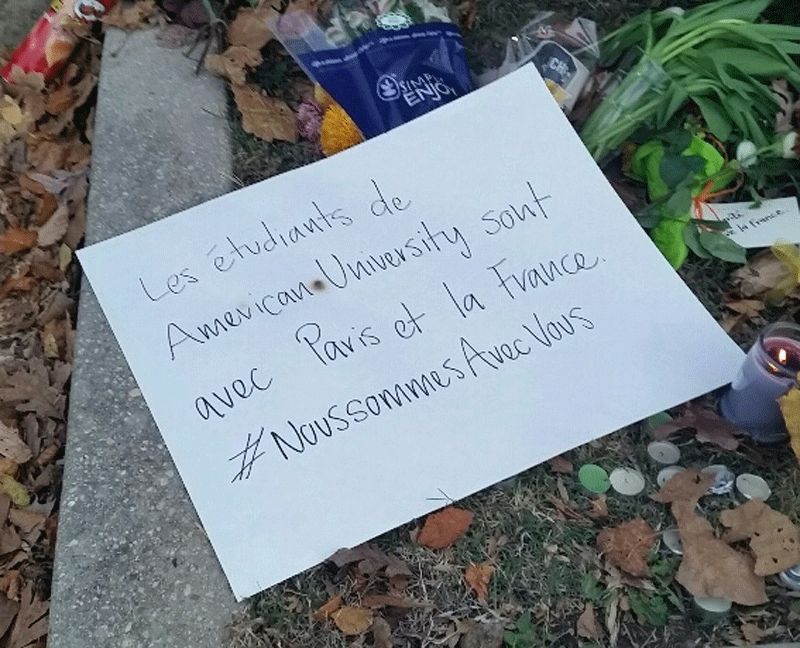 SIMPLY
ENJOY
Les étudiants de
American University sont
avec Paris et la France.
#NoussommesAvecVous
la France.